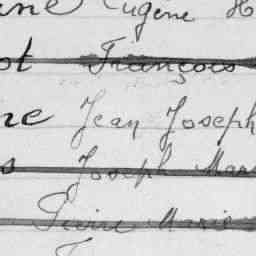 ene Eugène H
ot François
ne Jean Joseph
s Joseph Mar
Pierre Marie